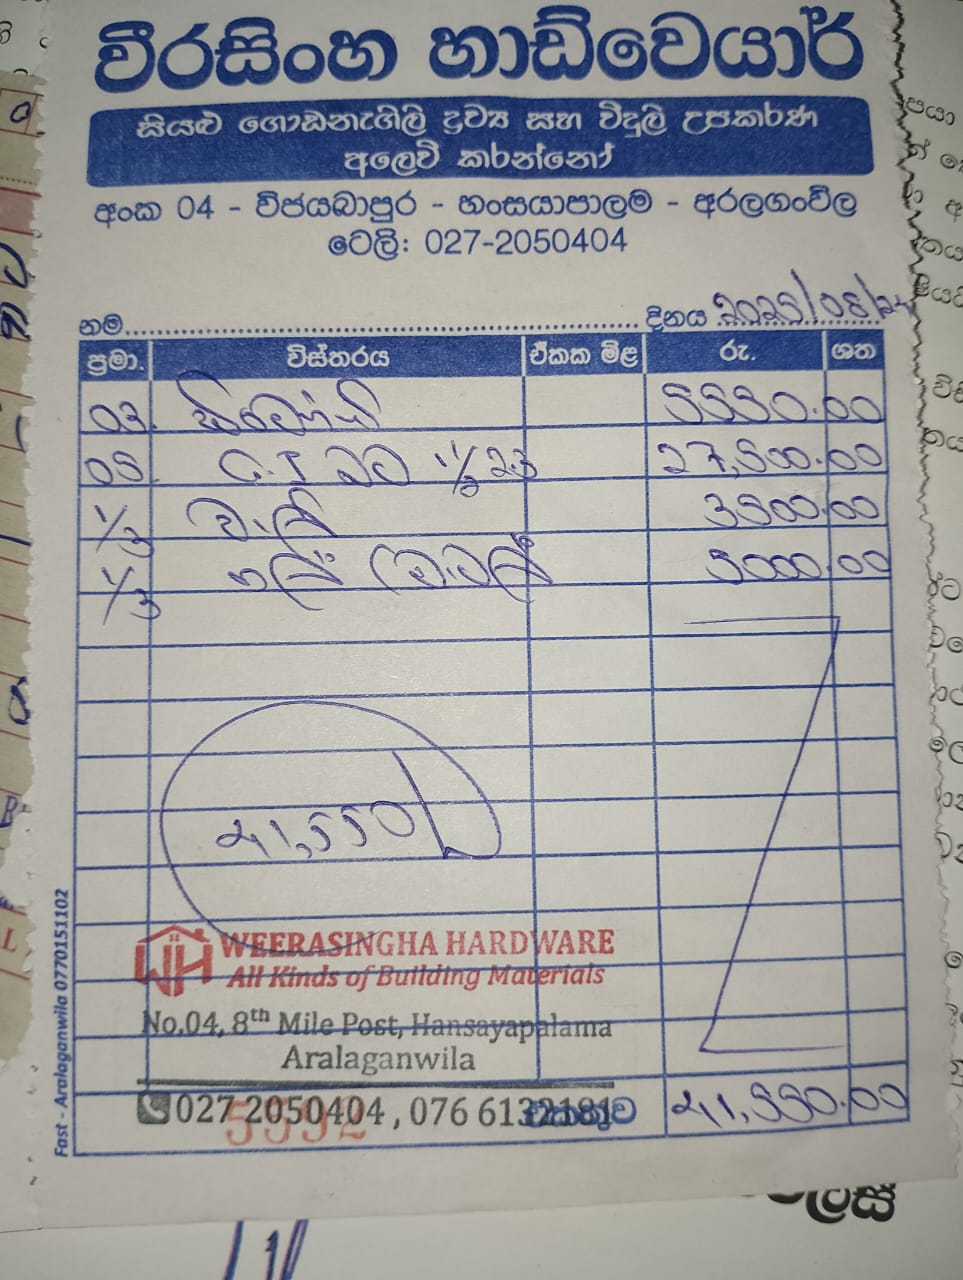 වීරසිංහ හාඩ්වෙයාර්
සියළු ගොඩනැගිලි ද්‍රව්‍ය සහ විදුලි උපකරණ
අලෙවි කරන්නෝ
අංක 04 - විජයබාපුර - හංසයාපාලම - අරලගංවිල
ටෙලි: 027-2050404
නම.......................... දිනය 2025/08/24
ප්‍රමා. විස්තරය ඒකක මිළ රු. ශත
03 සිමෙන්ති 5550.00
05 G.I බට 27,500.00
1/3 වැලි 3500.00
1/3 5000.00
41,550/
WEERASINGHA HARDWARE
All Kinds of Building Materials
No.04, 8th Mile Post, Hansayapalama
Aralaganwila
027 2050404 , 076 6132181
එකතුව 41,550.00
5592
Fast - Aralaganwila 0770151102